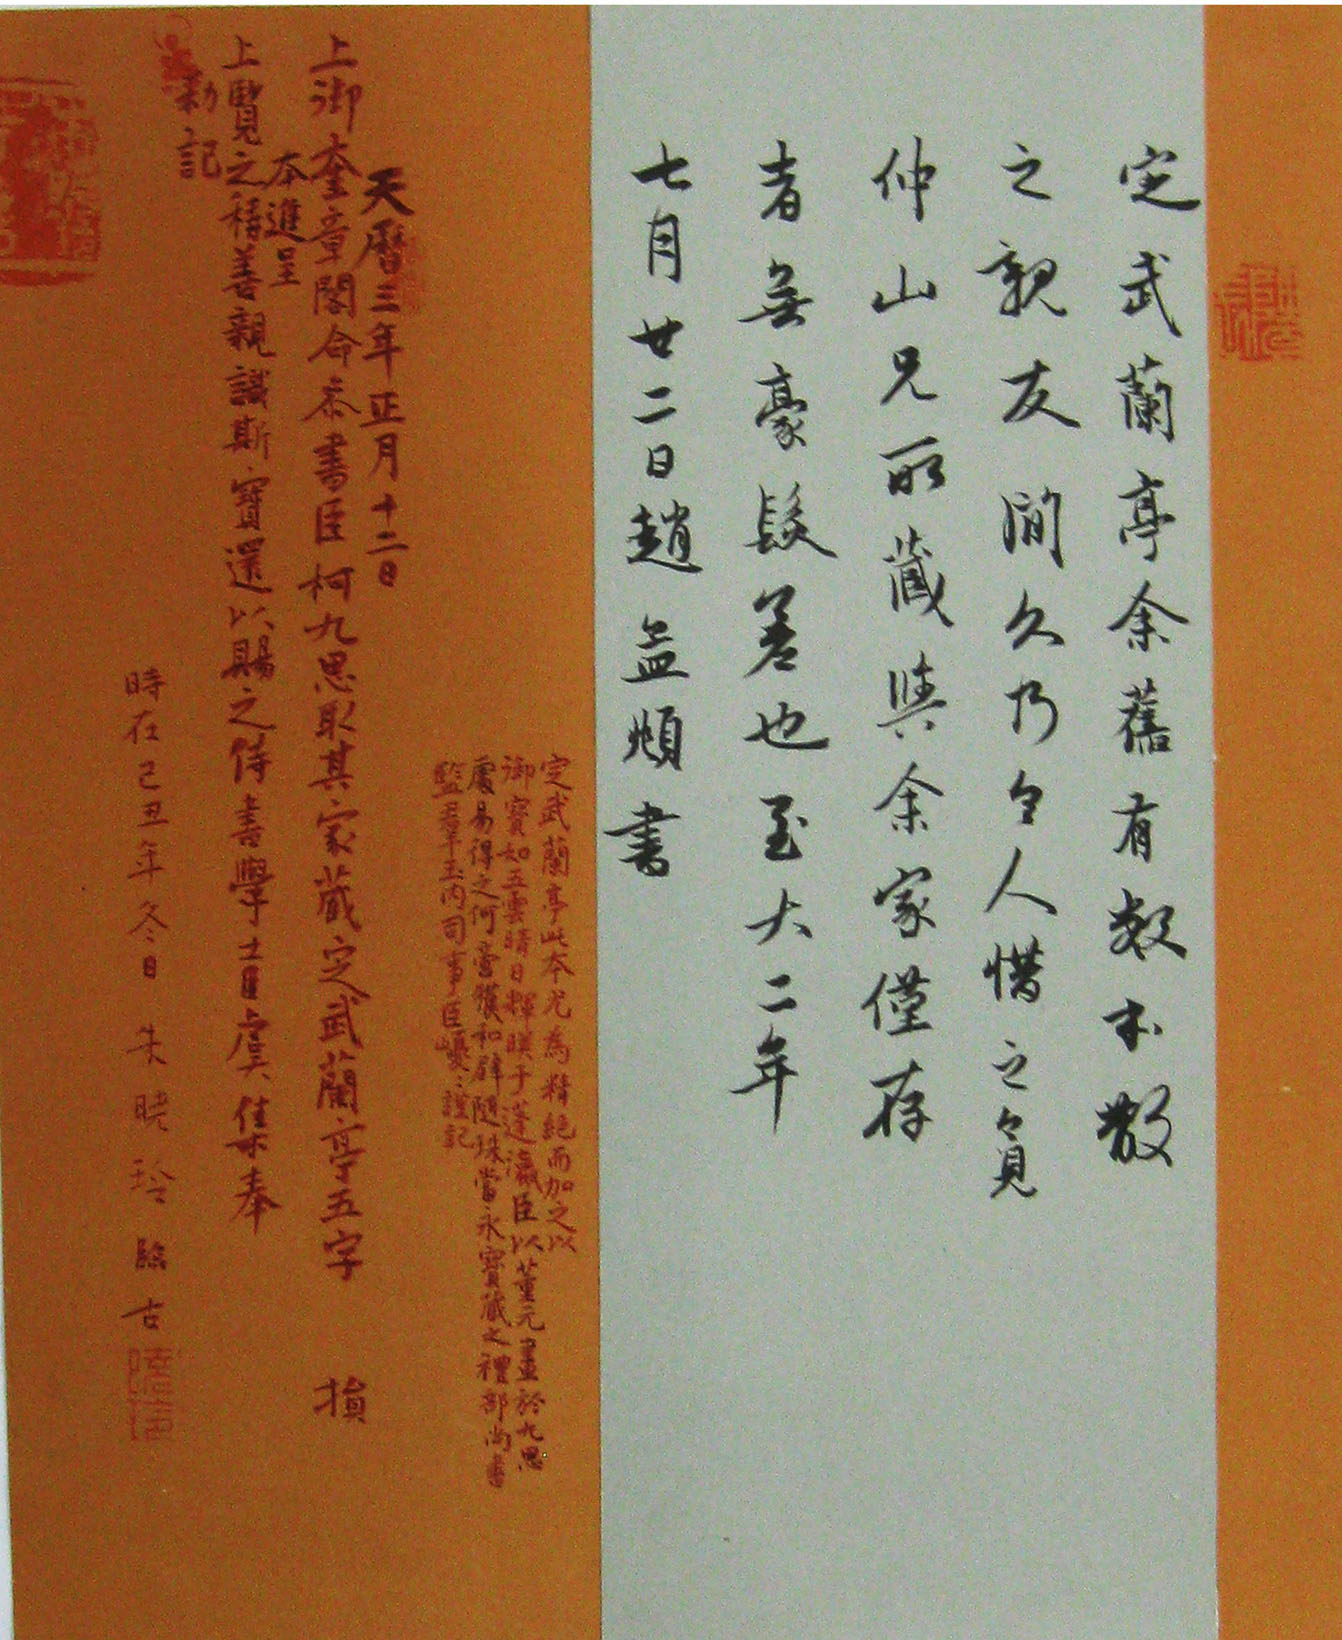 定武蘭亭余舊有數本散
之親友間久乃令人惜之負
仲山兄所藏與余家僅存
者無豪髮差也至大二年
七月廿二日趙孟頫書
定武蘭亭此本尤為精絕而加之以
御寶如五雲晴日輝映于蓬瀛臣以董元畫於九思
處易得之何啻獲和璧隨珠當永寶藏之禮部尚書
監羣玉內司事臣巎〻謹記
天曆三年正月十二日
上御奎章閣命叅書臣柯九思取其家藏定武蘭亭五字 損
本進呈
上覽之稱善親識斯寶還以賜之侍書學士臣虞集奉
勑記
時在己丑年冬日 朱曉玲臨古